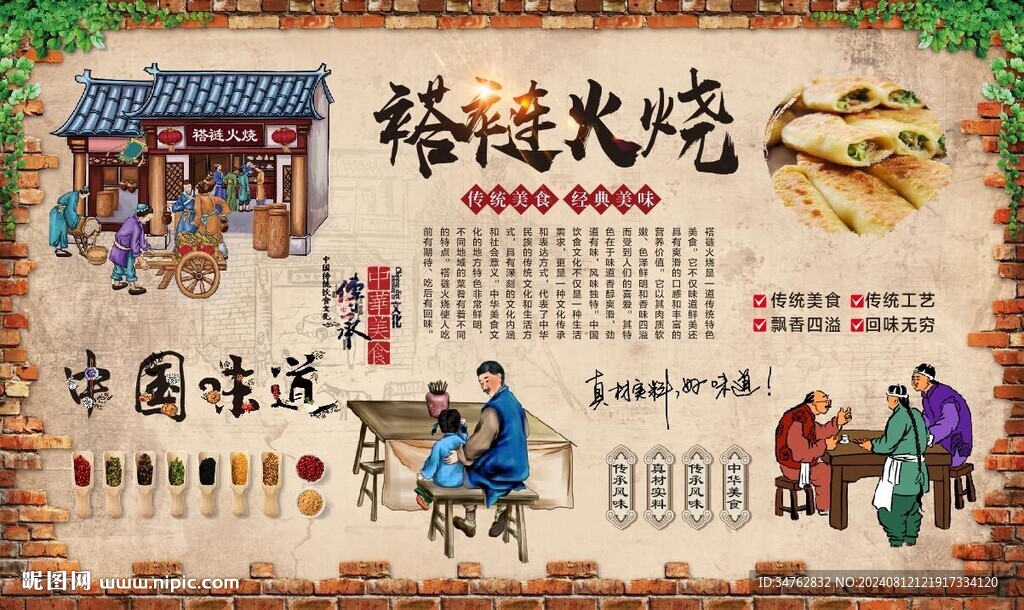 褡裢火烧
褡裢火烧
传统美食 经典美味
褡裢火烧是一道传统特色
美食。它不仅味道鲜美还
具有爽滑的口感和丰富的
营养价值。它以其肉质软
嫩、色泽鲜明和香味四溢
而受到人们的喜爱。其特
色在于味道香醇爽滑，劲
道有味，风味独特。中国
饮食文化不仅是一种生活
需求，更是一种文化传承
和表达方式，代表了中华
民族的传统文化和生活方
式，具有深刻的文化内涵
和社会意义。中华美食文
化的地方特色非常鲜明，
不同地域的菜肴有着不同
的特点。褡裢火烧使人吃
前有期待、吃后有回味。
传统美食
传统工艺
飘香四溢
回味无穷
中国传统饮食文化
传承
中華美食
文化
中国味道
真材实料,好味道!
传承风味
真材实料
传承风味
中华美食
昵图网 www.nipic.com
ID:34762832 NO:20240812121917334120